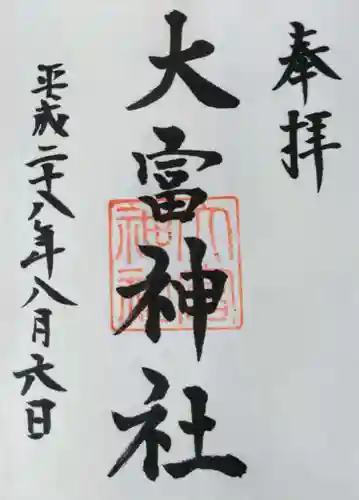 奉拝
大富神社
大富神社
平成二十八年八月六日